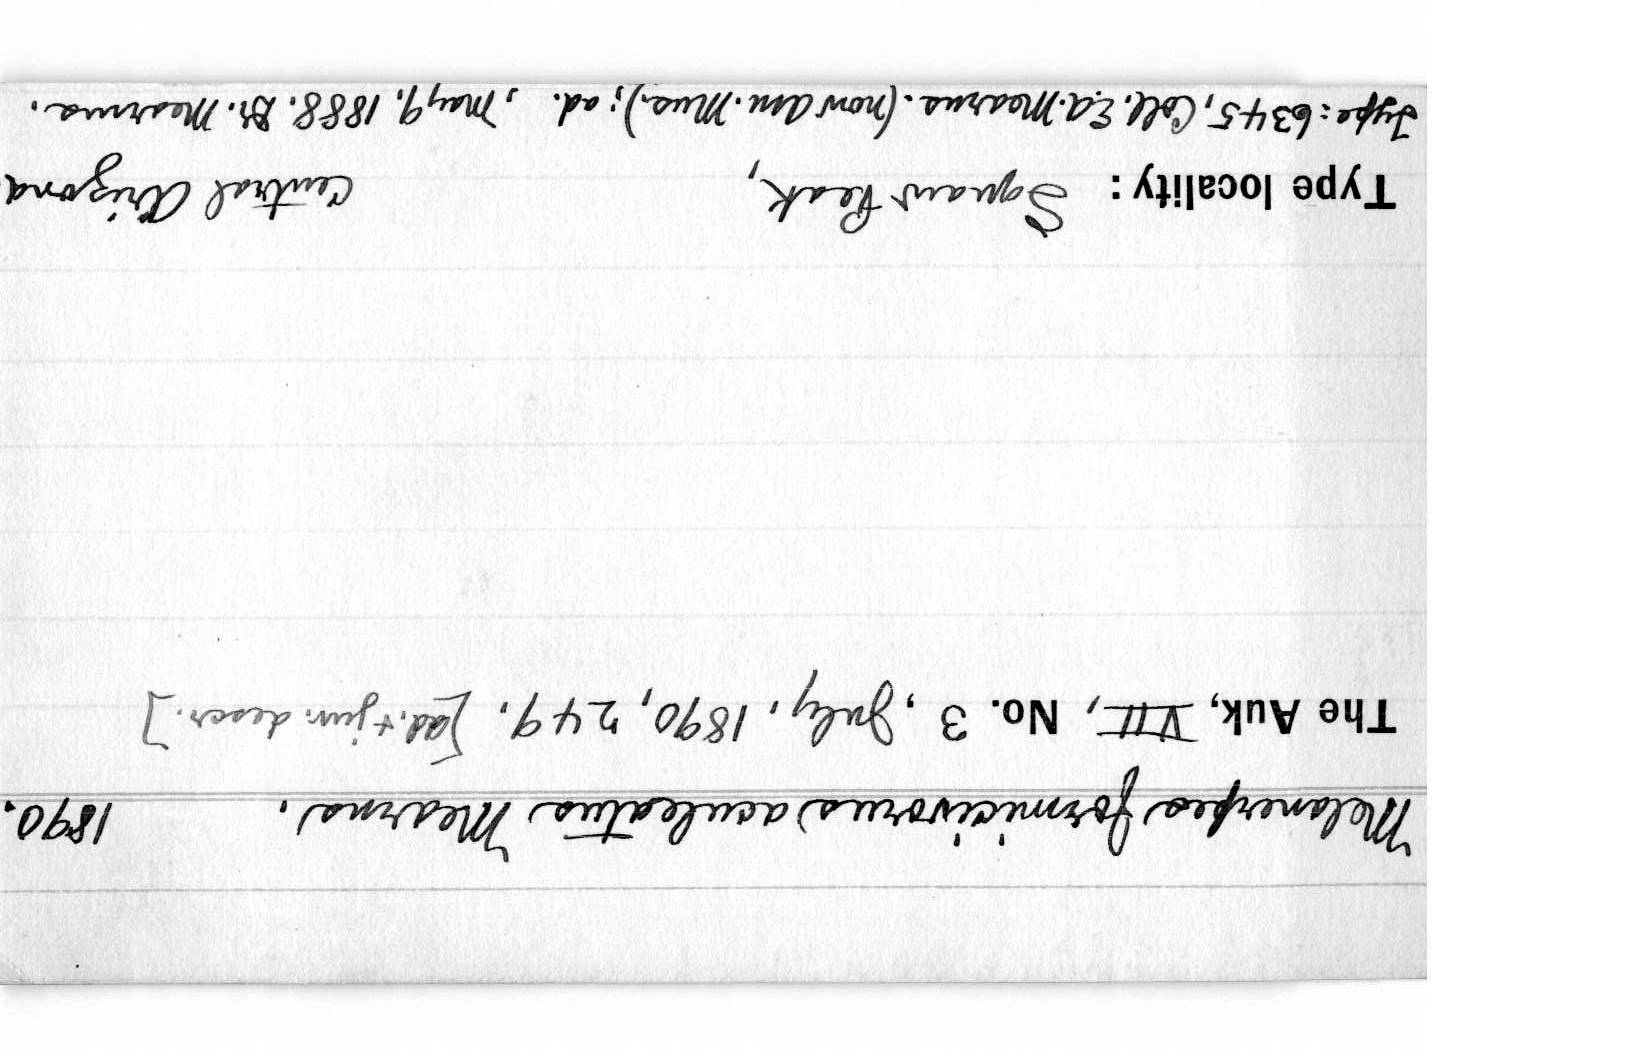 Melanerpes formicivorus aculeatus Mearns. 1890.
The Auk, VII, No. 3, July, 1890, 249. [ad. + juv. descr.]
Type locality: Squaw Peak, Central Arizona
Type: 6345, Coll. E.A. Mearns. (now Am. Mus.); ad. , May 9, 1888. Dr. Mearns.